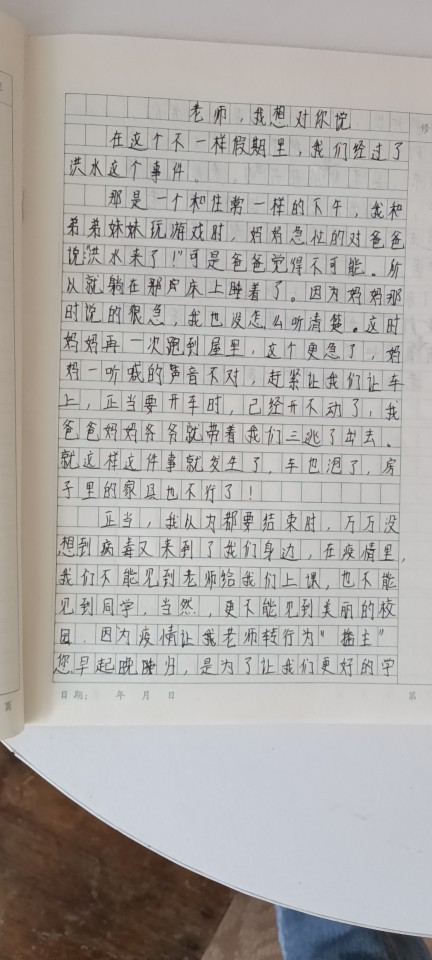 老师，我想对你说
在这个不一样假期里，我们经过了
洪水这个事件。
那是一个和往常一样的下午，我和
弟弟妹妹玩游戏时，妈妈急忙的对爸爸
说"洪水来了！"可是爸爸觉得不可能。所
以就躺在那床上睡着了。因为妈妈那
时说的很急，我也没怎么听清楚。这时
妈妈再一次跑到屋里，这个更急了，妈
妈一听喊的声音不对，赶紧让我们让车
上，正当要开车时，己经开不动了，我
爸爸妈妈爷爷就带着我们三逃了出去。
就这样这件事就发生了，车也泡了，房
子里的家具也不行了！
正当，我以为都要结束时，万万没
想到病毒又来到了我们身边，在疫情里，
我们不能见到老师给我们上课，也不能
见到同学，当然，更不能见到美丽的校
园，因为疫情让我老师转行为"播主"
您早起晚睡归，是为了让我们更好的学
日期： 年 月 日
第